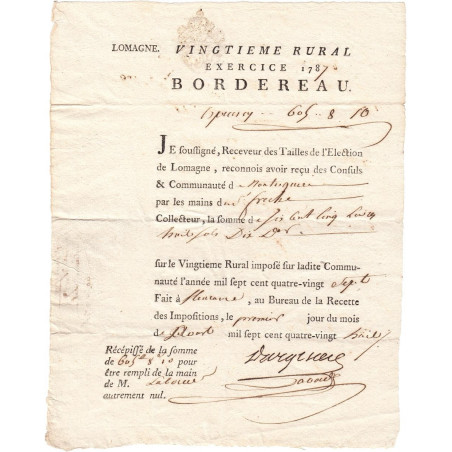 LOMAGNE. VINGTIEME RURAL
EXERCICE 1787
BORDEREAU.
605 .. 8 10
JE soussigné, Receveur des Tailles de l'Election
de Lomagne, reconnois avoir reçu des Consuls
& Communauté d
par les mains du s.r freche
Collecteur, la somme de Six Cent Cinq Livres
huit sols Dix Ders
sur le Vingtieme Rural imposé sur ladite Commu-
nauté l'année mil sept cent quatre-vingt Sept
Fait à fleurance, au Bureau de la Recette
des Impositions, le premier jour du mois
de mil sept cent quatre-vingt huit
Récépissé de la somme
de 605 8 10 pour
être rempli de la main
de M.
autrement nul.